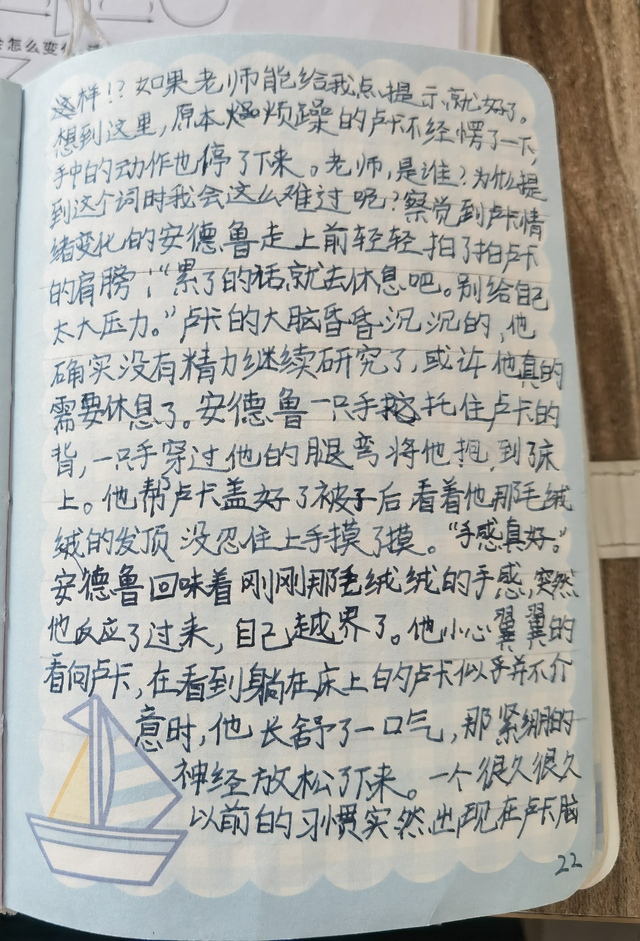 会怎么变化
这样!?如果老师能给我点提示就好了。
想到这里,原本烦躁的卢卡不经愣了一下,
手中的动作也停了下来。老师,是谁?为什么提
到这个词时我会这么难过呢?察觉到卢卡情
绪变化的安德鲁走上前轻轻拍了拍卢卡
的肩膀:“累了的话就去休息吧。别给自己
太大压力。”卢卡的大脑昏昏沉沉的,他
确实没有精力继续研究了,或许他真的
需要休息了。安德鲁一只手托住卢卡的
背,一只手穿过他的腿弯将他抱到了床
上。他帮卢卡盖好了被子后看着他那毛绒
绒的发顶没忍住上手摸了摸。“手感真好。”
安德鲁回味着刚刚那毛绒绒的手感,突然
他反应了过来,自己越界了。他小心翼翼的
看向卢卡,在看到躺在床上的卢卡似乎并不介
意时,他长舒了一口气,那紧绷的
神经放松了下来。一个很久很久
以前的习惯突然出现在卢卡脑
22